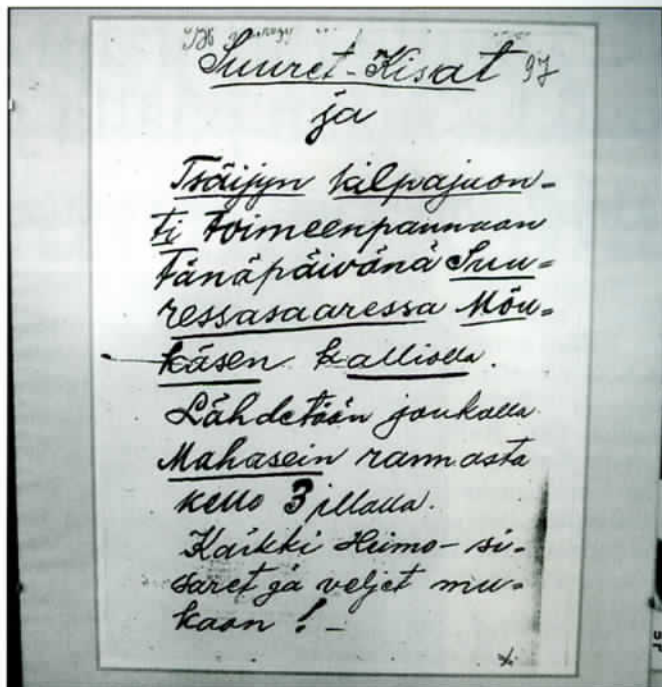 Suuret-Kisat 97
ja
Tsäijyn kilpajuon-
ti toimeenpannaan
tänäpäivänä Suu-
ressasaaressa Möu-
käsen kalliolla.
Lähdetään joukolla
Mahasein rannasta
kello 3 illalla.
Kaikki Heimo-si-
saret ja veljet mu-
kaan! -